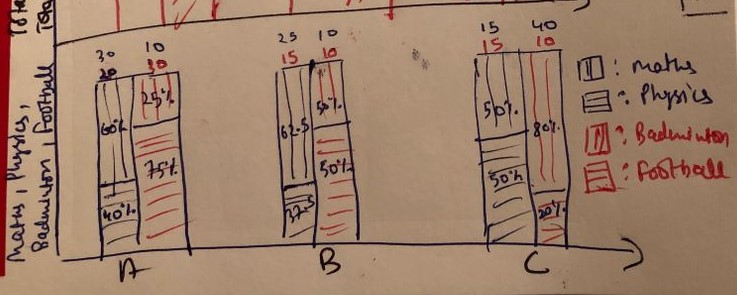 Maths, Physics,
Badminton, Football
30 10
20 30
25 10
15 10
15 40
15 10
60%
40%
25%
75%
62.5
37.5
50%
50%
50%
50%
80%
20%
A B C
: maths
: Physics
: Badminton
: Football